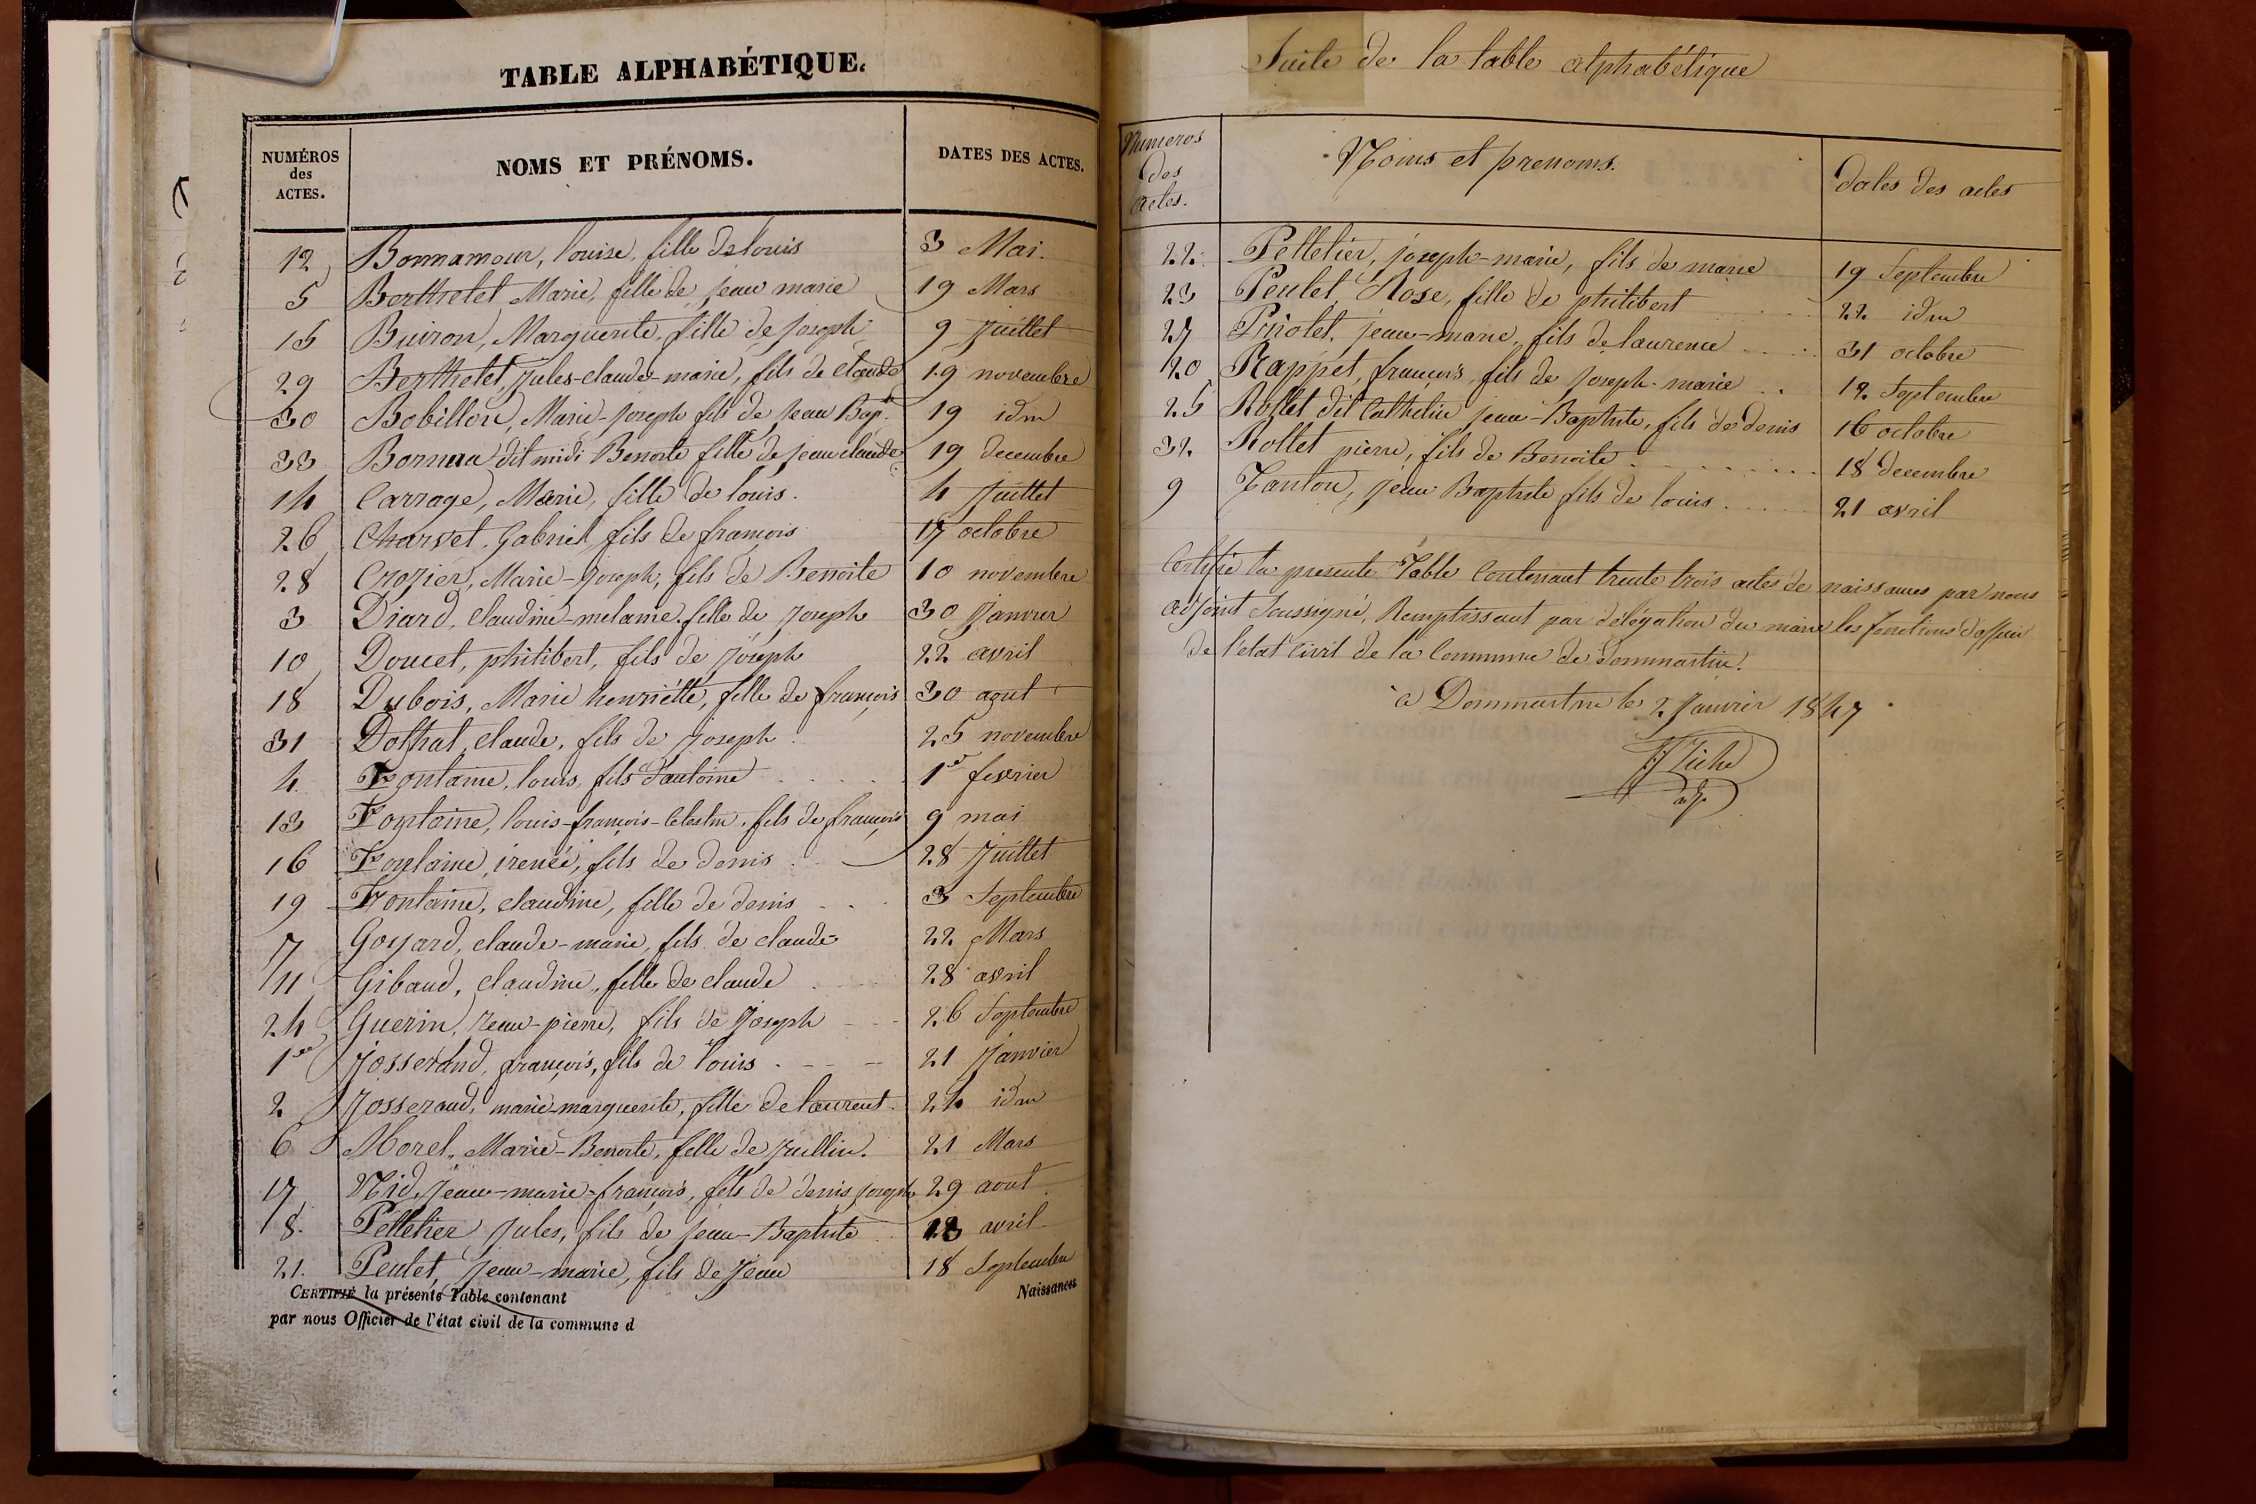 TABLE ALPHABÉTIQUE.
NUMÉROS des ACTES. NOMS ET PRÉNOMS. DATES DES ACTES.
12 Bonnamour, louise, fille de louis 3 Mai.
5 Berthelet Marie, fille de jean marie 19 Mars
15 Buiron, Marguerite, fille de Joseph 9 Juillet
29 Berthelet, Jules-claude-marie, fils de claude 19 novembre
30 Bobillon, Marie-Joseph fils de Jean Bapte. 19 idm
33 dit midi Benoite fille de jean claude 19 decembre
14 Carrage, Marie, fille de louis. 4 Juillet
26 Charvet, Gabriel, fils de françois 17 octobre
28 Crozier, Marie-Joseph, fils de Benoite 10 novembre
3 Diard, claudine-melanie. fille de Joseph 30 Janvier
10 Doucet, philibert, fils de Joseph 22 avril
18 Dubois, Marie henriette, fille de françois 30 aout
31 Dothat, claude, fils de Joseph. 25 novembre
4 Fontaine, louis, fils d'antoine 1er fevrier
13 Fontaine, louis-françois-Celestin, fils de françois 9 mai
16 Fontaine, irenée, fils de denis 28 Juillet
19 Fontaine, claudine, fille de denis 3 Septembre
7 Goyard, claude-marie, fils de claude 22 Mars
11 Gibaud, claudine, fille de claude 28 avril
24 Guerin, Jean-pierre, fils de Joseph 26 Septembre
1er Josserand, françois, fils de louis 21 Janvier
2 Josserand, marie-marguerite, fille de laurent. 24 idm
6 Morel, Marie-Benoite, fille de Jullin. 21 Mars
17 Nid, Jean-marie-françois, fils de denis joseph 29 aout
8. Pelletier Jules, fils de Jean-Baptiste 13 avril
21. Peulet, Jean-marie, fils de Jean 18 Septembre
CERTIFIÉ la présente Table contenant Naissances
par nous Officier de l'état civil de la commune d
Suite de la table alphabétique
Numeros des actes. Noms et prenoms. dates des actes
22 Pelletier, joseph-marie, fils de marie 19 Septembre
23 Peulet, Rose, fille de philibert 22 idm
27 Priolet, jean-marie, fils de laurence 31 octobre
20 Rappet, françois, fils de Joseph-marie 12 Septembre
25 Rollet dit Cathelin jean-Baptiste, fils de denis 16 octobre
32 Rollet pierre, fils de Benoite 18 decembre
9 Tanton, Jean Baptiste fils de louis 21 avril
Certifié la presente Table Contenant trente trois actes de naissances par nous
adjoint Soussigné, Remplissant par délégation du maire les fonctions d'officier
de l'etat Civil de la Commune de Dommartin.
a Dommartin le 2 Janvier 1847
adj.